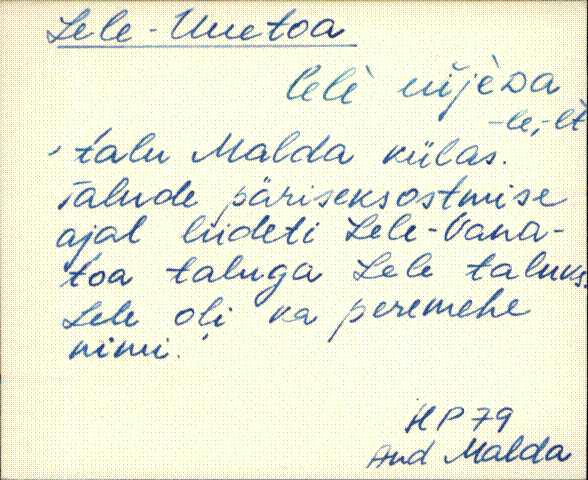 Lele-Uuetoa
lelè ūijèᴅa
-le, -lt
'talu Malda külas.
Talude päriseksostmise
ajal liideti Lele-Vana-
toa taluga Lele taluks.
Lele oli ka peremehe
nimi.
HP 79
And Malda